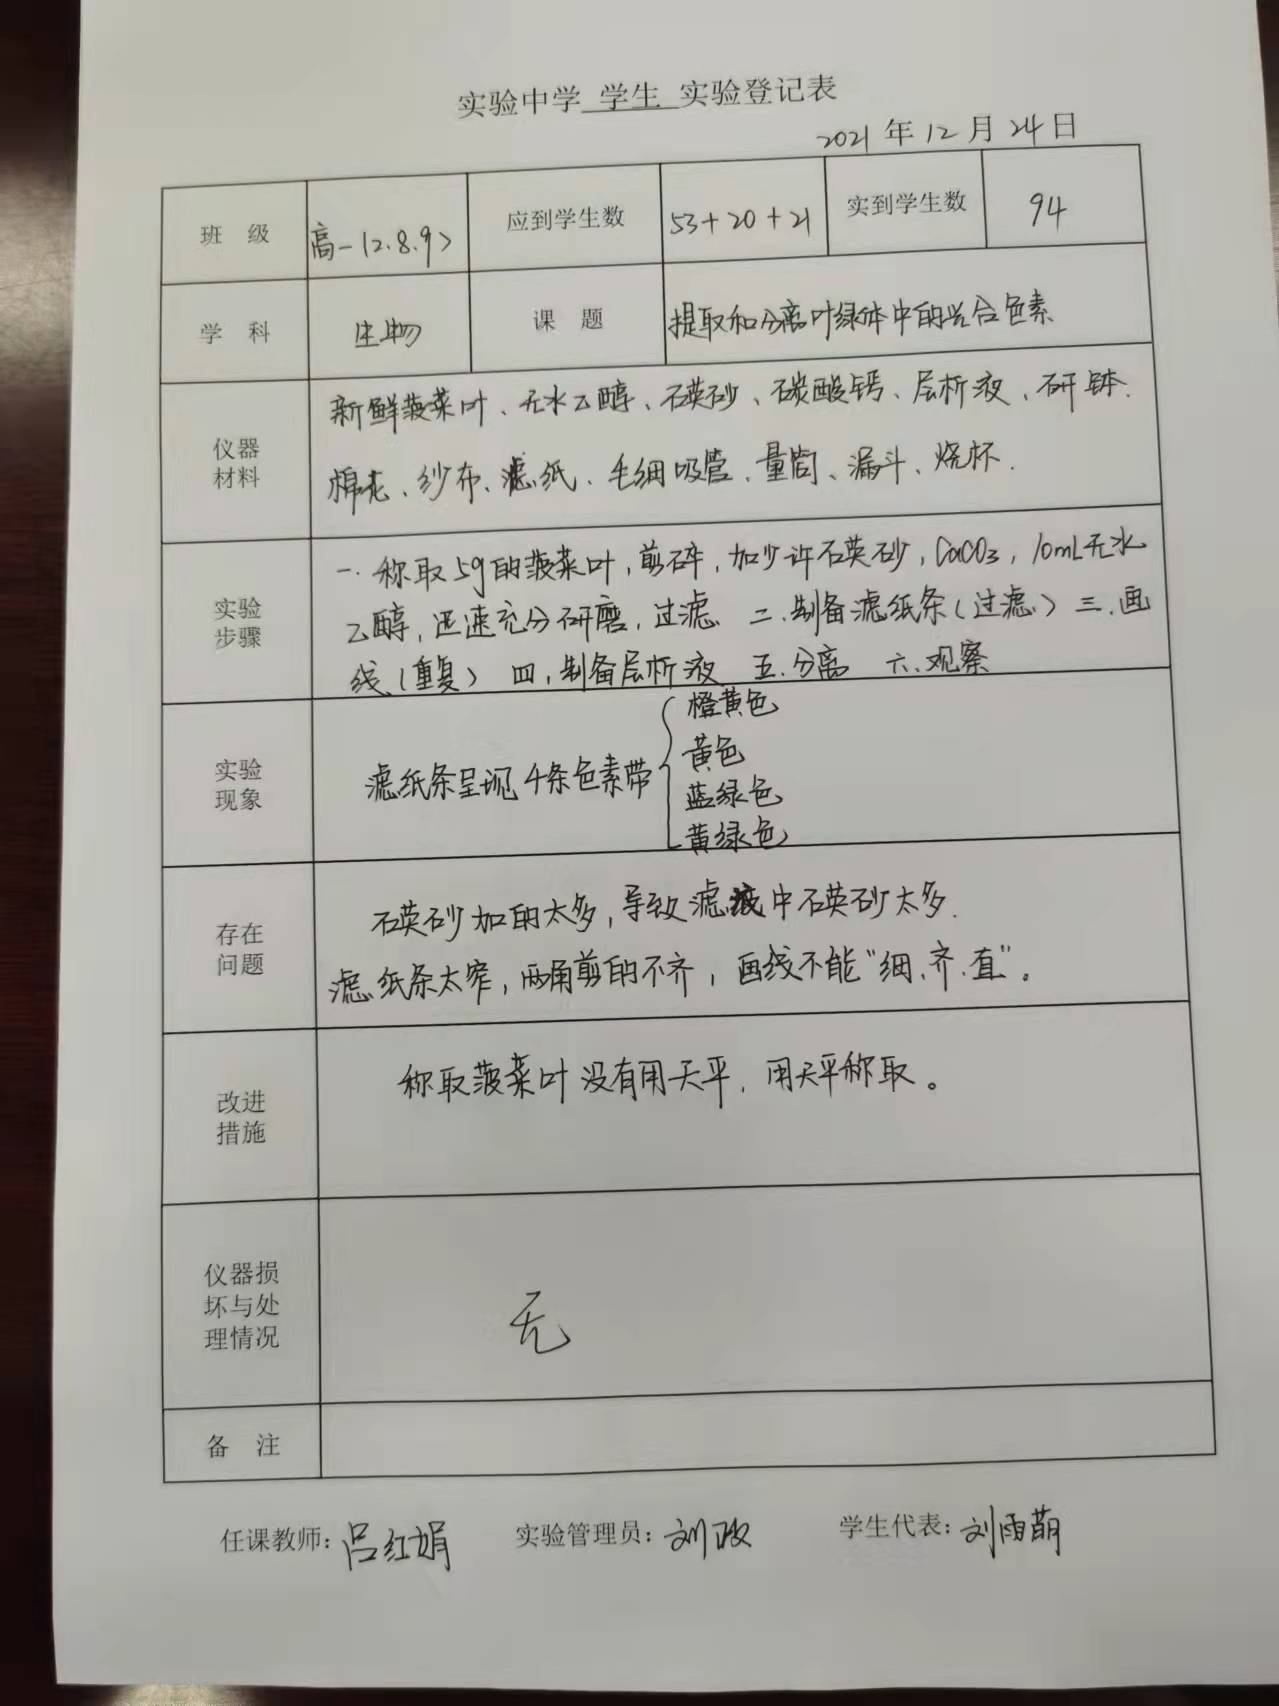 实验中学 学生 实验登记表
2021 年 12 月 24 日
班 级 高一(2.8.9) 应到学生数 53+20+21 实到学生数 94
学 科 生物 课 题 提取和分离叶绿体中的光合色素
仪器
材料
新鲜菠菜叶、无水乙醇、石英砂、碳酸钙、层析液、研钵.
棉花、纱布、滤纸、毛细吸管、量筒、漏斗、烧杯.
实验
步骤
一. 称取5g的菠菜叶,剪碎,加少许石英砂,CaCO3,10mL无水
乙醇,迅速充分研磨,过滤. 二.制备滤纸条(过滤) 三.画
线(重复) 四,制备层析液 五.分离 六.观察
实验
现象
滤纸条呈现4条色素带
橙黄色
黄色
蓝绿色
黄绿色
存在
问题
石英砂加的太多,导致滤液中石英砂太多.
滤纸条太窄,两角剪的不齐,画线不能“细.齐.直”。
改进
措施
称取菠菜叶没有用天平,用天平称取。
仪器损
坏与处
理情况
无
备 注
任课教师:吕红娟 实验管理员:刘政 学生代表:刘雨萌